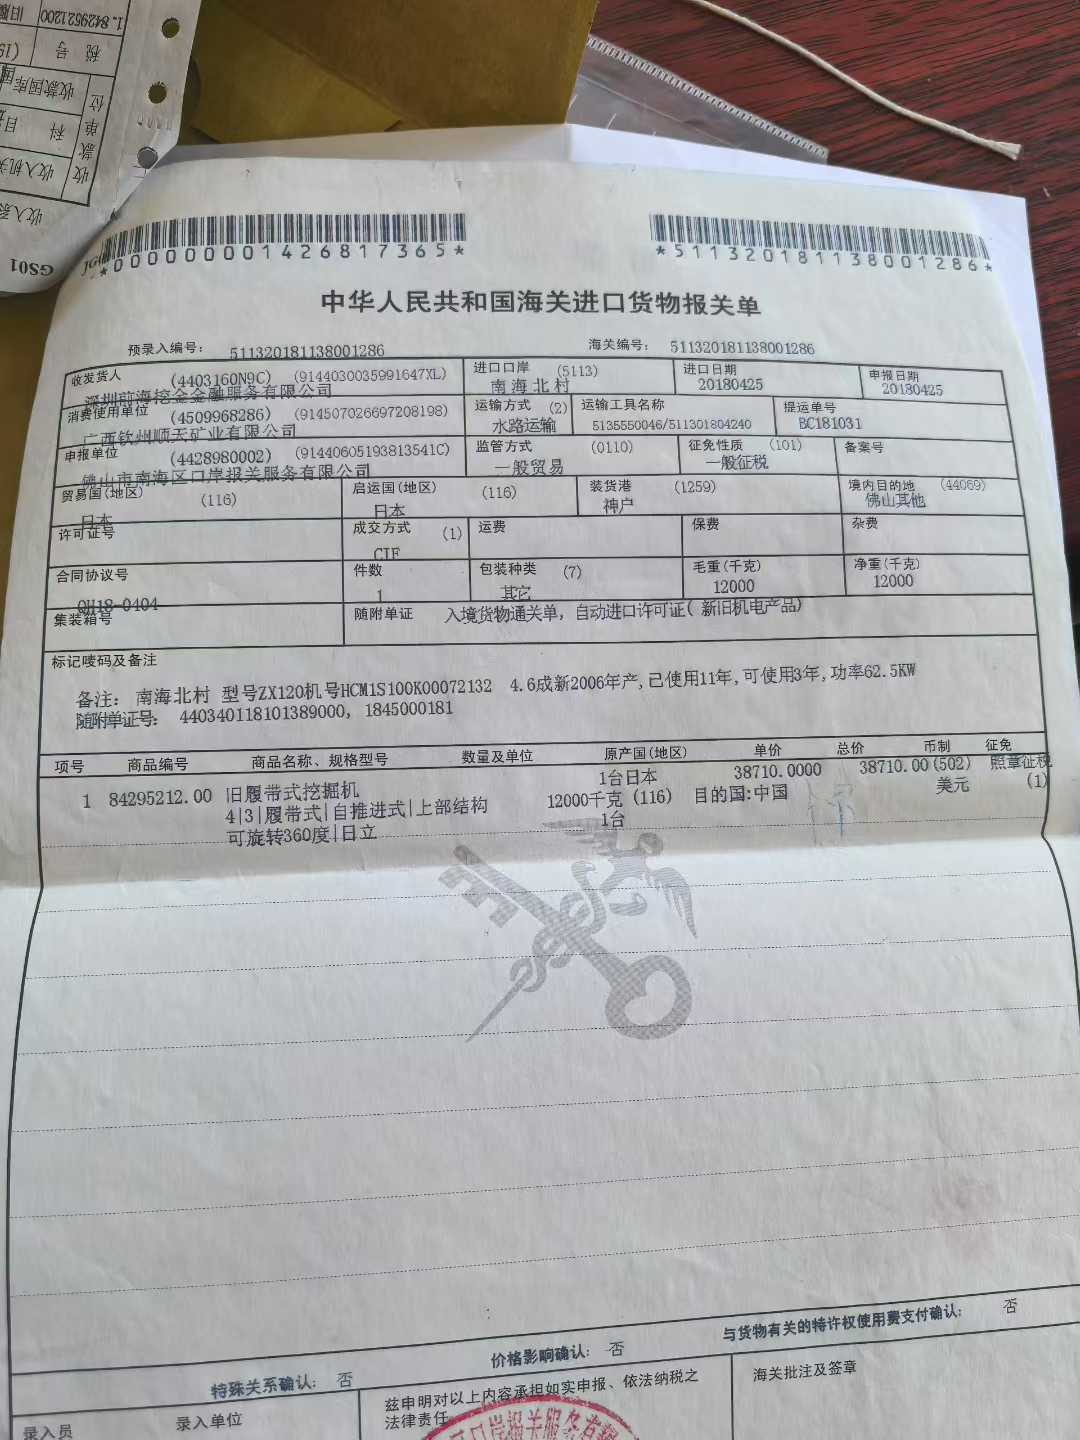 1.8429521200
税 号
收款国库
科 目
收款单位
GS01
*000000001426817365*
*511320181138001286*
中华人民共和国海关进口货物报关单
预录入编号： 511320181138001286 海关编号： 511320181138001286
收发货人 (4403160N9C) (9144030035991647XL) 进口口岸 (5113) 进口日期 申报日期
深圳前海挖金金融服务有限公司 南海北村 20180425 20180425
消费使用单位 (4509968286) (914507026697208198) 运输方式 (2) 运输工具名称 提运单号
广西钦州顺天矿业有限公司 水路运输 5135550046/511301804240 BC181031
申报单位 (4428980002) (91440605193813541C) 监管方式 (0110) 征免性质 (101) 备案号
佛山市南海区口岸报关服务有限公司 一般贸易 一般征税
贸易国(地区) (116) 启运国(地区) (116) 装货港 (1259) 境内目的地 (44069)
日本 日本 神户 佛山其他
许可证号 成交方式 (1) 运费 保费 杂费
CIF
合同协议号 件数 包装种类 (7) 毛重(千克) 净重(千克)
QH18-0404 1 其它 12000 12000
集装箱号 随附单证 入境货物通关单, 自动进口许可证( 新旧机电产品)
标记唛码及备注
备注： 南海北村 型号ZX120机号HCM1S100K00072132 4.6成新2006年产,已使用11年,可使用3年,功率62.5KW
随附单证号： 440340118101389000, 1845000181
项号 商品编号 商品名称、规格型号 数量及单位 原产国(地区) 单价 总价 币制 征免
1 84295212.00 旧履带式挖掘机 1台日本 38710.0000 38710.00(502) 照章征税
4|3|履带式|自推进式|上部结构 12000千克 (116) 目的国:中国 美元 (1)
可旋转360度|日立 1台
特殊关系确认： 否 价格影响确认： 否 与货物有关的特许权使用费支付确认： 否
录入员 录入单位 兹申明对以上内容承担如实申报、依法纳税之 海关批注及签章
法律责任
区口岸报关服务有限